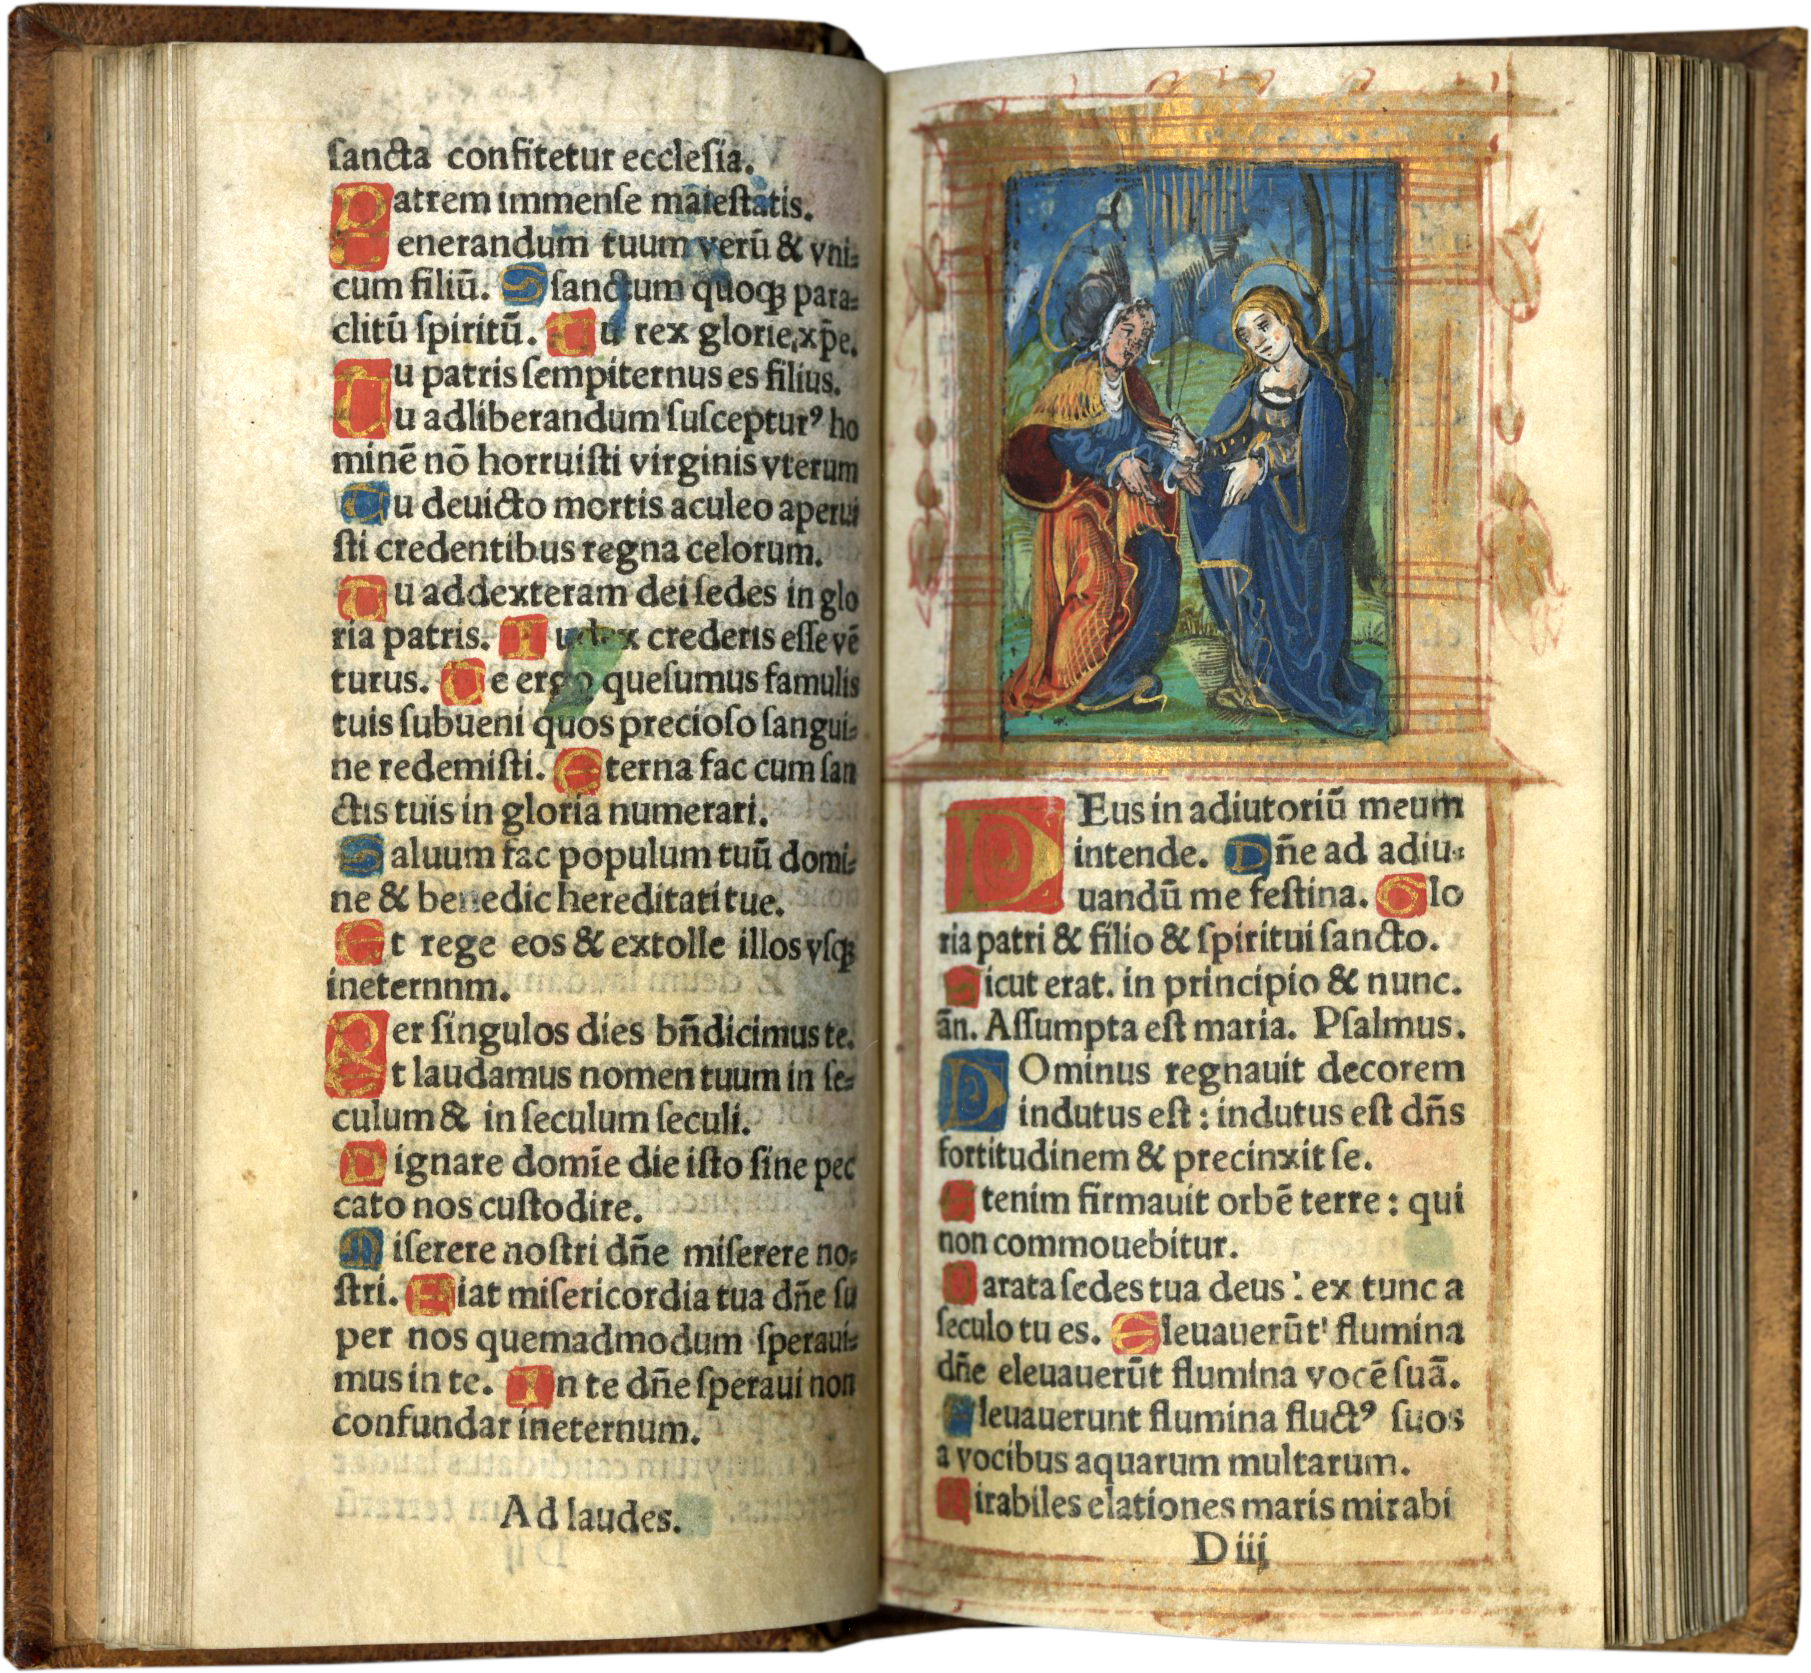 ſancta confitetur eccleſia.
Patrem immenſe maieſtatis.
Uenerandum tuum verū & vni=
cum filiū. Sſanctum quoqꝫ para=
clitū ſpiritū. Tu rex glorie,xp̄e.
Tu patris ſempiternus es filius.
Tu adliberandum ſuſcepturꝰ ho
minē nō horruiſti virginis vterum
Tu deuicto mortis aculeo aperui
ſti credentibus regna celorum.
Tu addexteram dei ſedes in glo
ria patris. Iudex crederis eſſe vē
turus. Te ergo queſumus famulis
tuis ſubueni quos precioſo ſangui=
ne redemiſti. Eterna fac cum ſan
ctis tuis in gloria numerari.
Saluum fac populum tuū domi=
ne & benedic hereditati tue.
Et rege eos & extolle illos vſqꝫ
ineternnm.
Per ſingulos dies bn̄dicimus te.
Et laudamus nomen tuum in ſe=
culum & in ſeculum ſeculi.
Dignare domīe die iſto ſine pec
cato nos cuſtodire.
Miſerere noſtri dn̄e miſerere no=
ſtri. Fiat miſericordia tua dn̄e ſu
per nos quemadmodum ſperaui=
mus in te. In te dn̄e ſperaui non
confundar ineternum.
Ad laudes.
DEus in adiutoriū meum
intende. Dn̄e ad adiu=
uandū me feſtina. Glo
ria patri & filio & ſpiritui ſancto.
Sicut erat. in principio & nunc.
ān. Aſſumpta eſt maria. Pſalmus.
DOminus regnauit decorem
indutus eſt : indutus eſt dn̄s
fortitudinem & precinxit ſe.
Etenim firmauit orbē terre : qui
non commouebitur.
Parata ſedes tua deus : ex tunc a
ſeculo tu es. Eleuauerūt flumina
dn̄e eleuauerūt flumina vocē ſuā.
Eleuauerunt flumina fluctꝰ ſuos
a vocibus aquarum multarum.
Mirabiles elationes maris mirabi
D iij